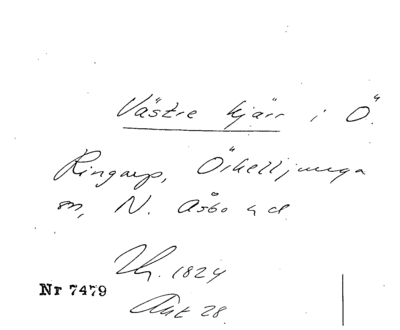 Västre kjärr i Ö.
Ringarp, Örkelljunga
sn, N. Åsbo hd
1824
Nr 7479
Akt 28.